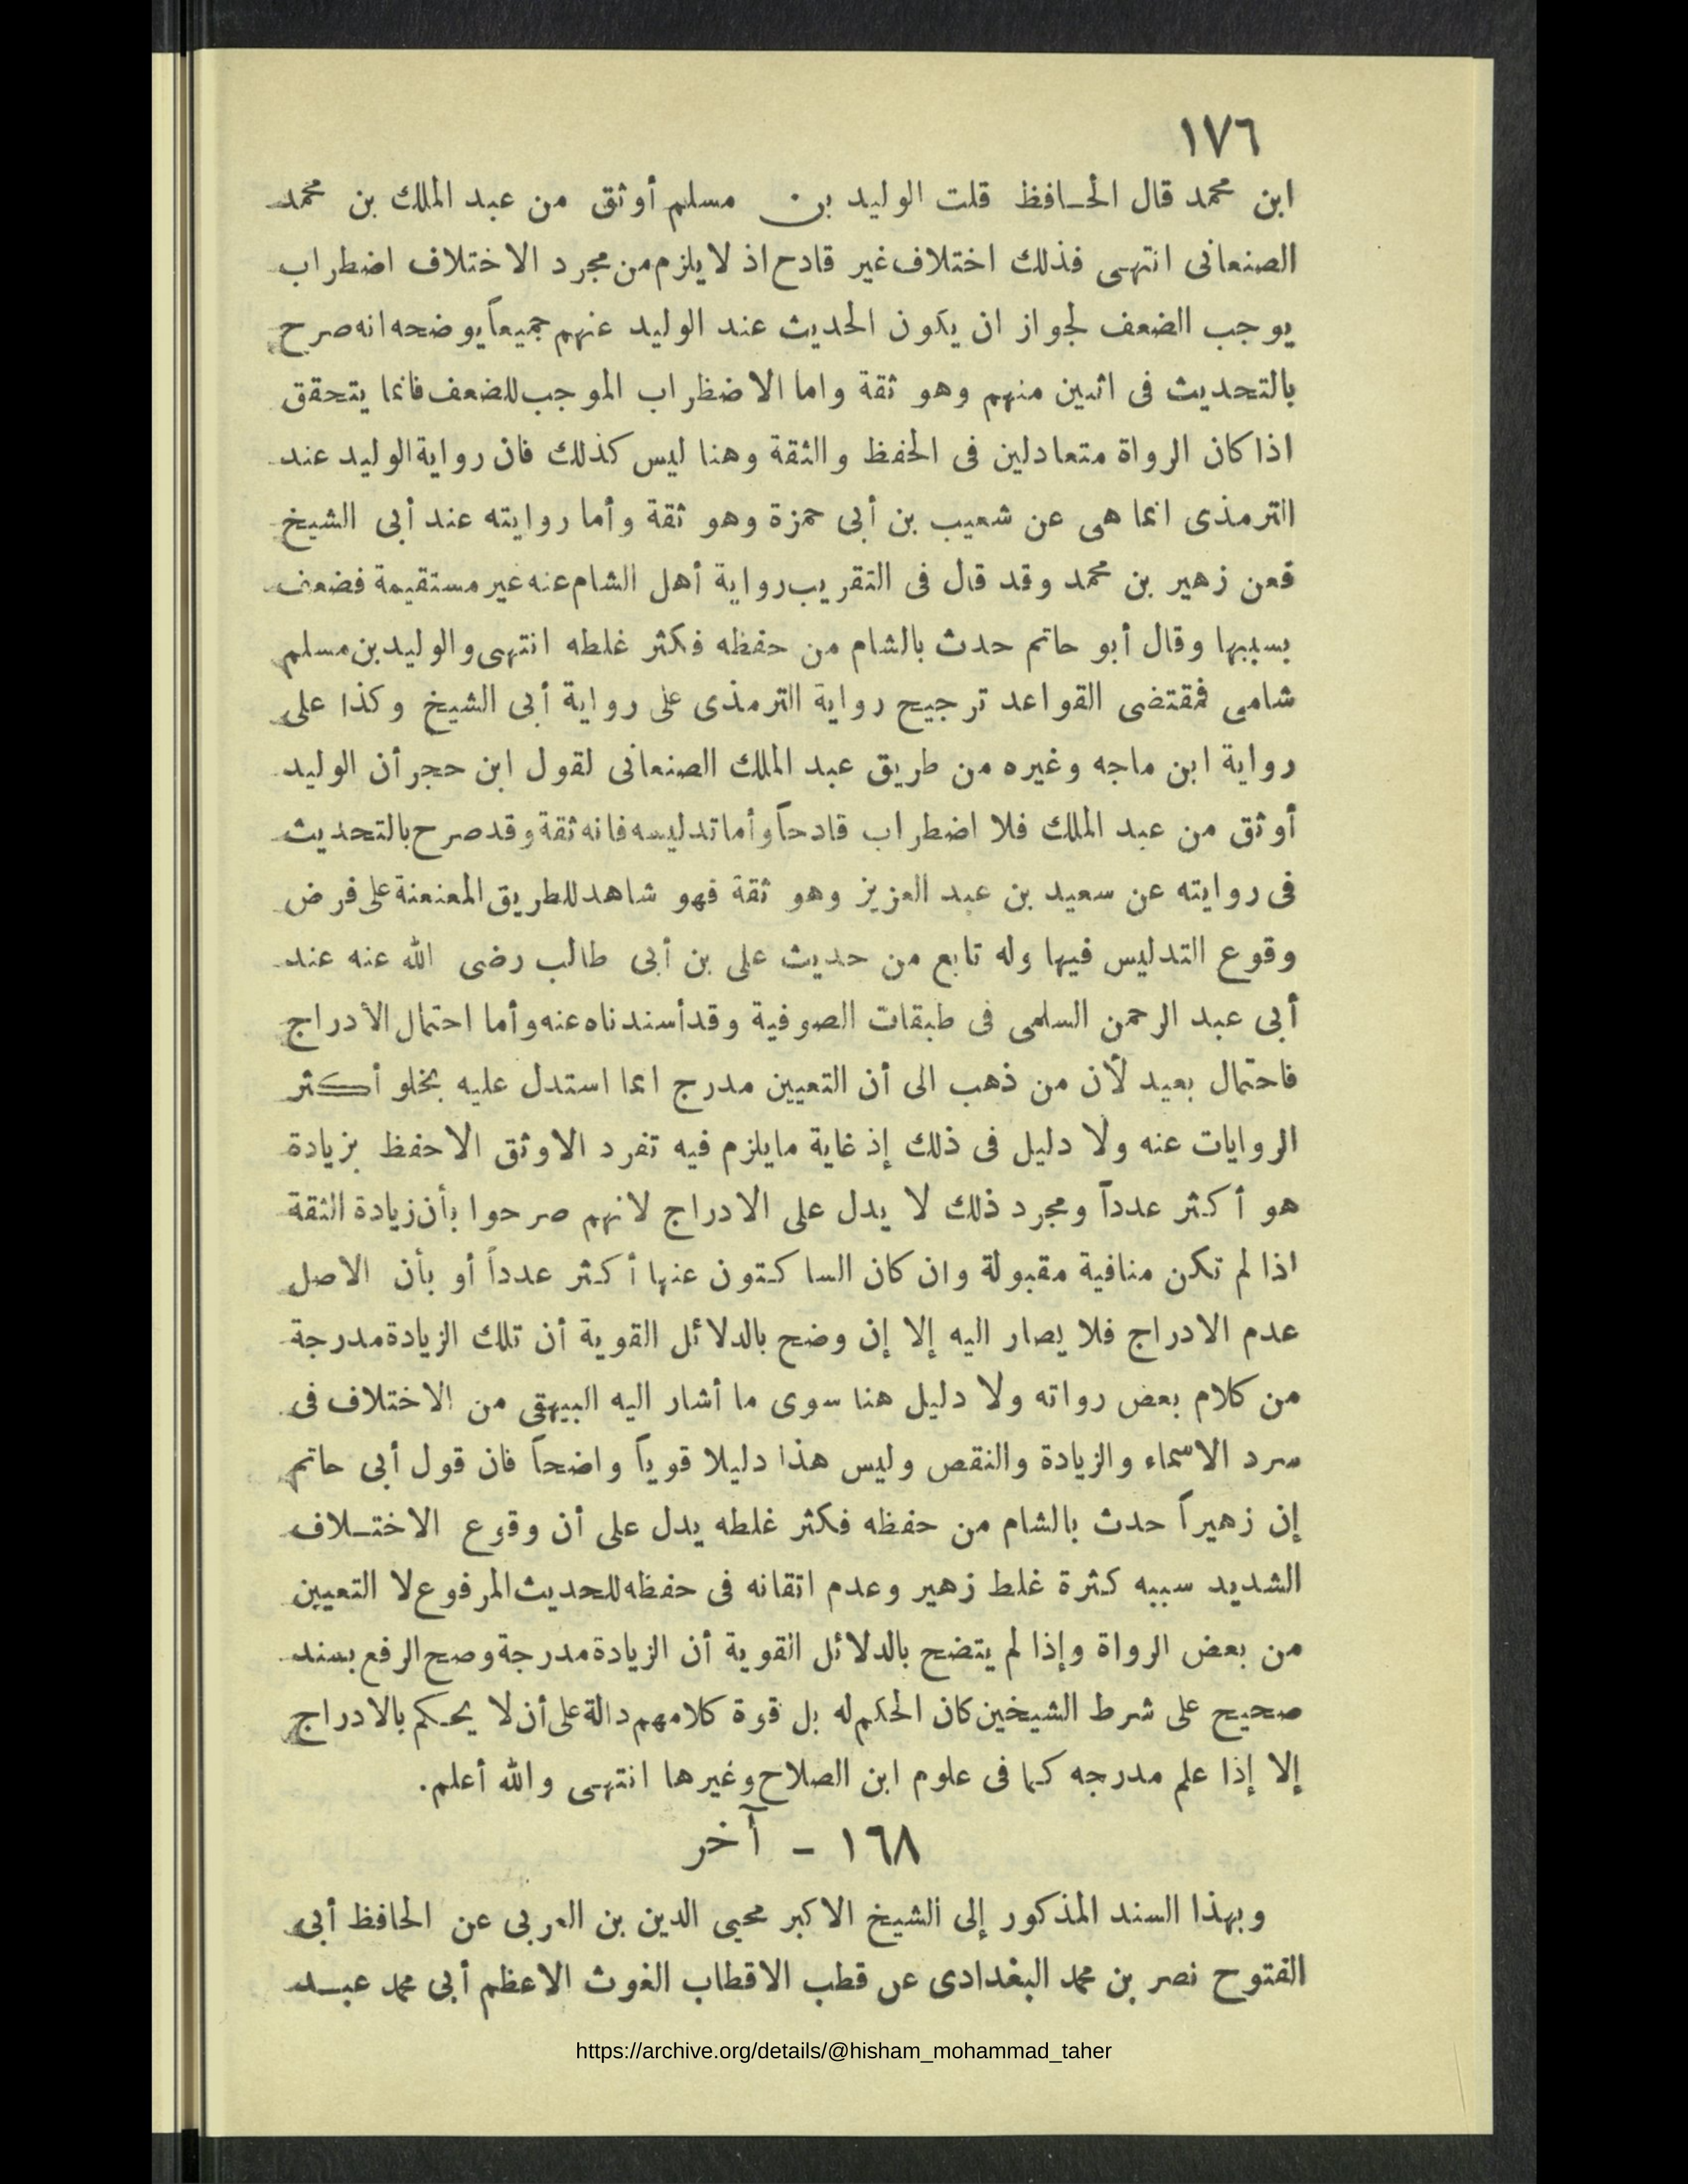 ١٧٦
ابن محمد قال الحـافظ قلت الوليد بن مسلم أوثق من عبد الملك بن محمد
الصنعانى انتهى فذلك اختلاف غير قادح اذ لا يلزم من مجرد الاختلاف اضطراب
يوجب الضعف لجواز ان يكون الحديث عند الوليد عنهم جميعاً يوضحه انه صرح
بالتحديث فى اثنين منهم وهو ثقة واما الاضظراب الموجب للضعف فانما يتحقق
اذا كان الرواة متعادلين فى الحفظ والثقة وهنا ليس كذلك فان رواية الوليد عند
الترمذى انما هى عن شعيب بن أبى حمزة وهو ثقة وأما روايته عند أبى الشيخ
فعن زهير بن محمد وقد قال فى التقريب رواية أهل الشام عنه غير مستقيمة فضعف
بسببها وقال أبو حاتم حدث بالشام من حفظه فكثر غلطه انتهى والوليد بن مسلم
شامى فمقتضى القواعد ترجيح رواية الترمذى على رواية أبى الشيخ وكذا على
رواية ابن ماجه وغيره من طريق عبد الملك الصنعانى لقول ابن حجر أن الوليد
أوثق من عبد الملك فلا اضطراب قادحاً وأما تدليسه فانه ثقة وقد صرح بالتحديث
فى روايته عن سعيد بن عبد العزيز وهو ثقة فهو شاهد للطريق المعنعنة على فرض
وقوع التدليس فيها وله تابع من حديث على بن أبى طالب رضى الله عنه عند
أبى عبد الرحمن السلمى فى طبقات الصوفية وقد أسندناه عنه وأما احتمال الأدراج
فاحتمال بعيد لأن من ذهب الى أن التعيين مدرج انما استدل عليه بخلو أكثر
الروايات عنه ولا دليل فى ذلك إذ غاية مايلزم فيه تفرد الاوثق الاحفظ بزيادة
هو أكثر عدداً ومجرد ذلك لا يدل على الادراج لانهم صرحوا بأن زيادة الثقة
اذا لم تكن منافية مقبولة وان كان الساكتون عنها أكثر عدداً أو بأن الاصل
عدم الادراج فلا يصار اليه إلا إن وضح بالدلائل القوية أن تلك الزيادة مدرجة
من كلام بعض رواته ولا دليل هنا سوى ما أشار اليه البيهقى من الاختلاف فى
سرد الاسماء والزيادة والنقص وليس هذا دليلا قوياً واضحاً فان قول أبى حاتم
إن زهيراً حدث بالشام من حفظه فكثر غلطه يدل على أن وقوع الاختـلاف
الشديد سببه كثرة غلط زهير وعدم اتقانه فى حفظه للحديث المرفوع لا التعيين
من بعض الرواة وإذا لم يتضح بالدلائل القوية أن الزيادة مدرجة وصح الرفع بسند
صحيح على شرط الشيخين كان الحكم له بل قوة كلامهم دالة على أن لا يحكم بالادراج
إلا إذا علم مدرجه كما فى علوم ابن الصلاح وغيرها انتهى والله أعلم.
١٦٨ - آخر
وبهذا السند المذكور إلى الشيخ الاكبر محيى الدين بن العربى عن الحافظ أبى
الفتوح نصر بن محمد البغدادى عن قطب الاقطاب الغوث الاعظم أبى محمد عبـد
https://archive.org/details/@hisham_mohammad_taher